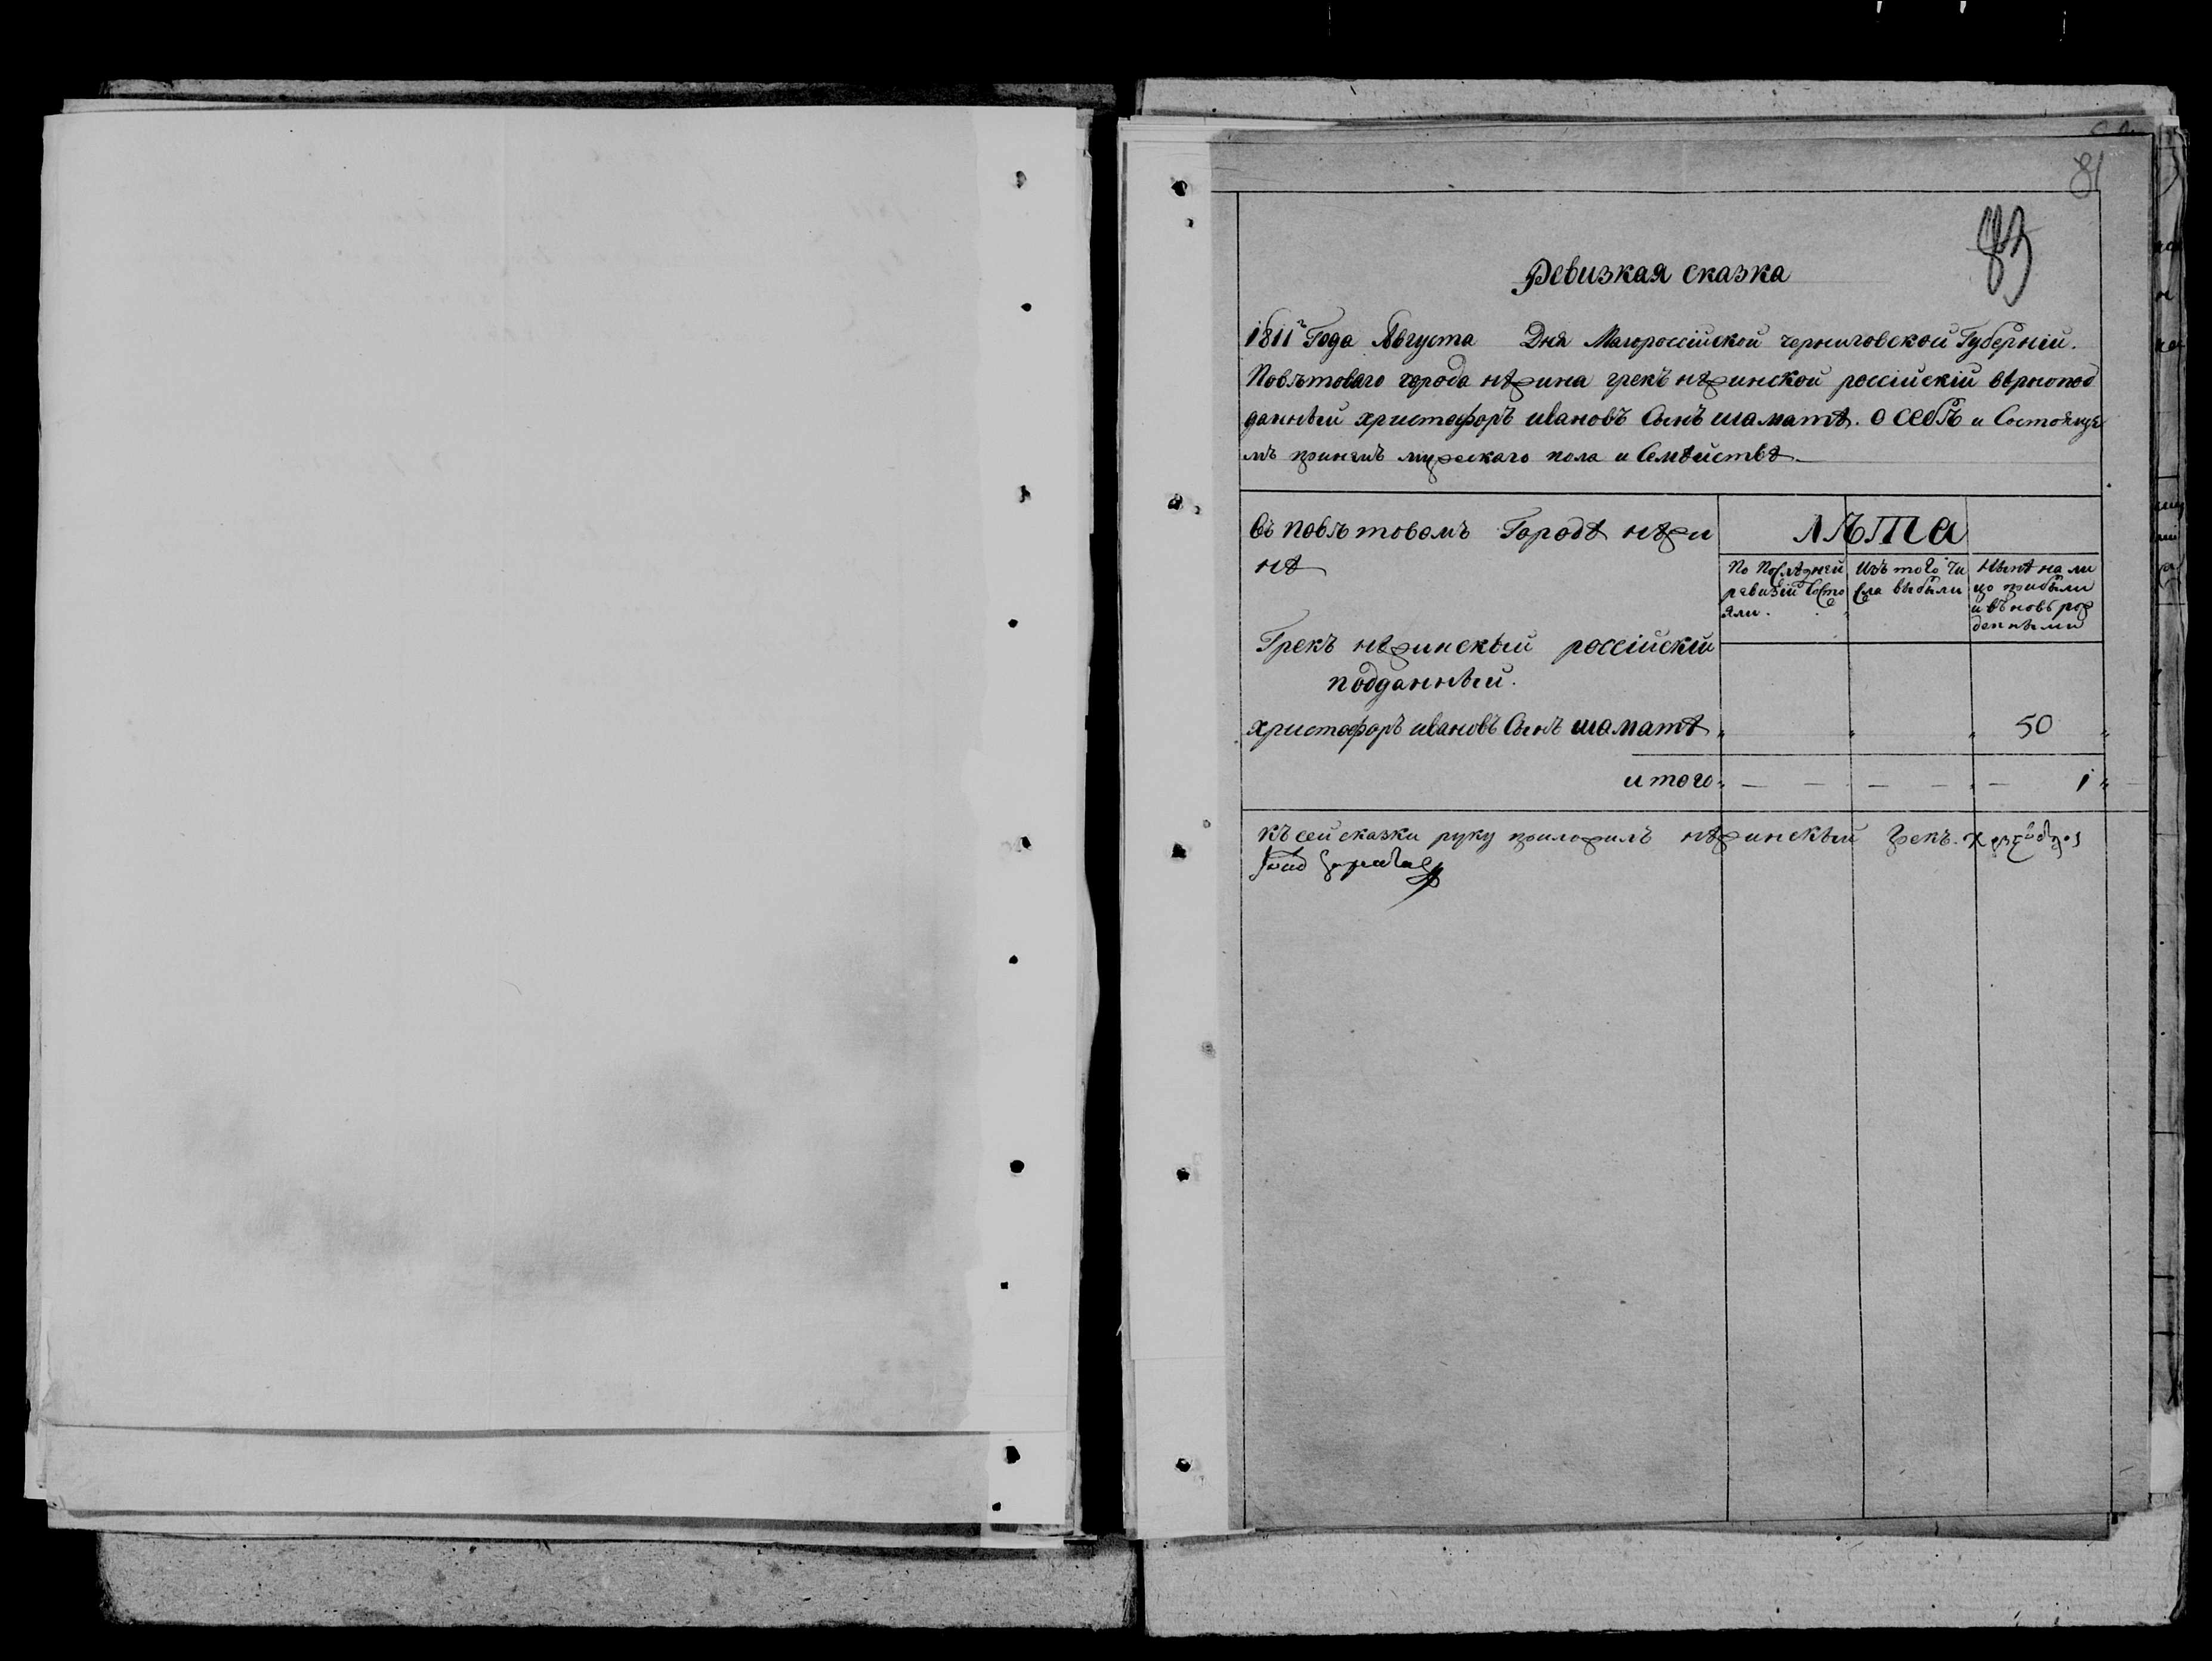 81
83
Ревизкая сказка
1811г Года Августа Дня Малороссійской черниговской Губерніи.
Повѣтоваго города нѣжина грекъ нѣжинской россійскій вѣрнопод
данный христофоръ ивановъ Сынъ шаматѣ. о себѣ и Состояще
мъ при немъ мужескаго пола и Семѣйствѣ
въ повѣтовомъ Городѣ нѣжи
нѣ
лѣта
По Послѣдней ревизіи Состо яли.
Изъ того чи сла выбыли
Нынѣ на ли цо прибыли и въновь рож денными
Грекъ нѣжинскый россійскій
подданный.
христофоръ ивановъ Сынъ шаматѣ „ „ „ 50 „
итого „ — — — — „ — 1 „
къ сей сказки руку приложилъ нѣжинскый грекъ.